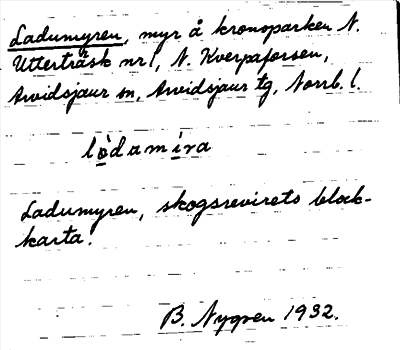 Ladumyren, myr å kronoparken N.
Utterträsk nr 1, N. Kverpaforsen,
Arvidsjaur sn, Arvidsjaur tg, Norrb. l.
lòdamira
Ladumyren, skogsrevirets block-
karta.
B. Nygren 1932.